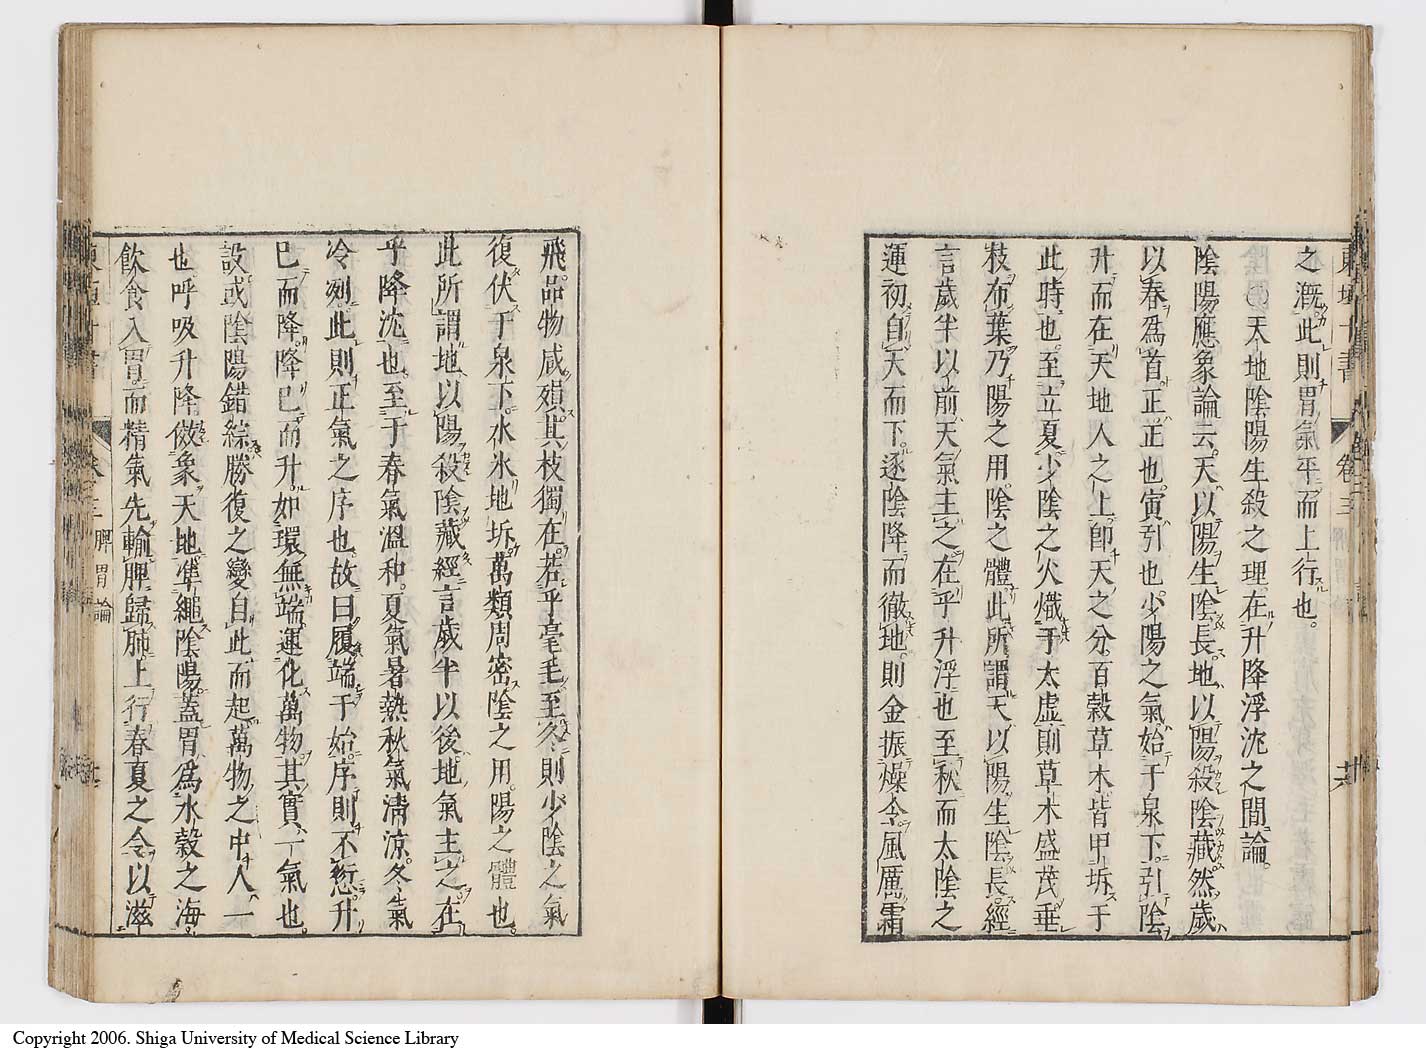 東垣十書 卷三
之漑此則胃氣平而上行也。
天地陰陽生殺之理在升降浮沈之間論。
陰陽應象論云。天以陽生陰長。地以陽殺陰藏。然歲
以春爲首。正正也。寅引也。少陽之氣始于泉下。引陰
升而在天地人之上。卽天之分。百穀草木皆甲坼于
此時也。至立夏少陰之火熾于太虛則草木盛茂垂
枝布葉。乃陽之用。陰之體。此所謂天以陽生陰長。經
言歲半以前天氣主之。在乎升浮也。至秋而太陰之
運初自天而下。逐陰降而徹地。則金振燥令。風厲霜
飛。品物咸殞。其枝獨在。若乎毫毛。至冬則少陰之氣
復伏于泉下。水氷地坼。萬類周密。陰之用。陽之體也。
此所謂地以陽殺陰藏。經言歲半以後地氣主之。在
乎降沈也。至于春氣溫和。夏氣暑熱。秋氣淸涼。冬氣
冷冽。此則正氣之序也。故曰履端于始。序則不愆。升
已而降。降已而升。如環無端。運化萬物。其實一氣也。
設或陰陽錯綜。勝復之變自此而起。萬物之中人一
也。呼吸升降。倣象天地。準繩陰陽。蓋胃爲水穀之海。
飮食入胃。而精氣先輸脾歸肺。上行春夏之令。以滋
卷三 脾胃論
Copyright 2006. Shiga University of Medical Science Library